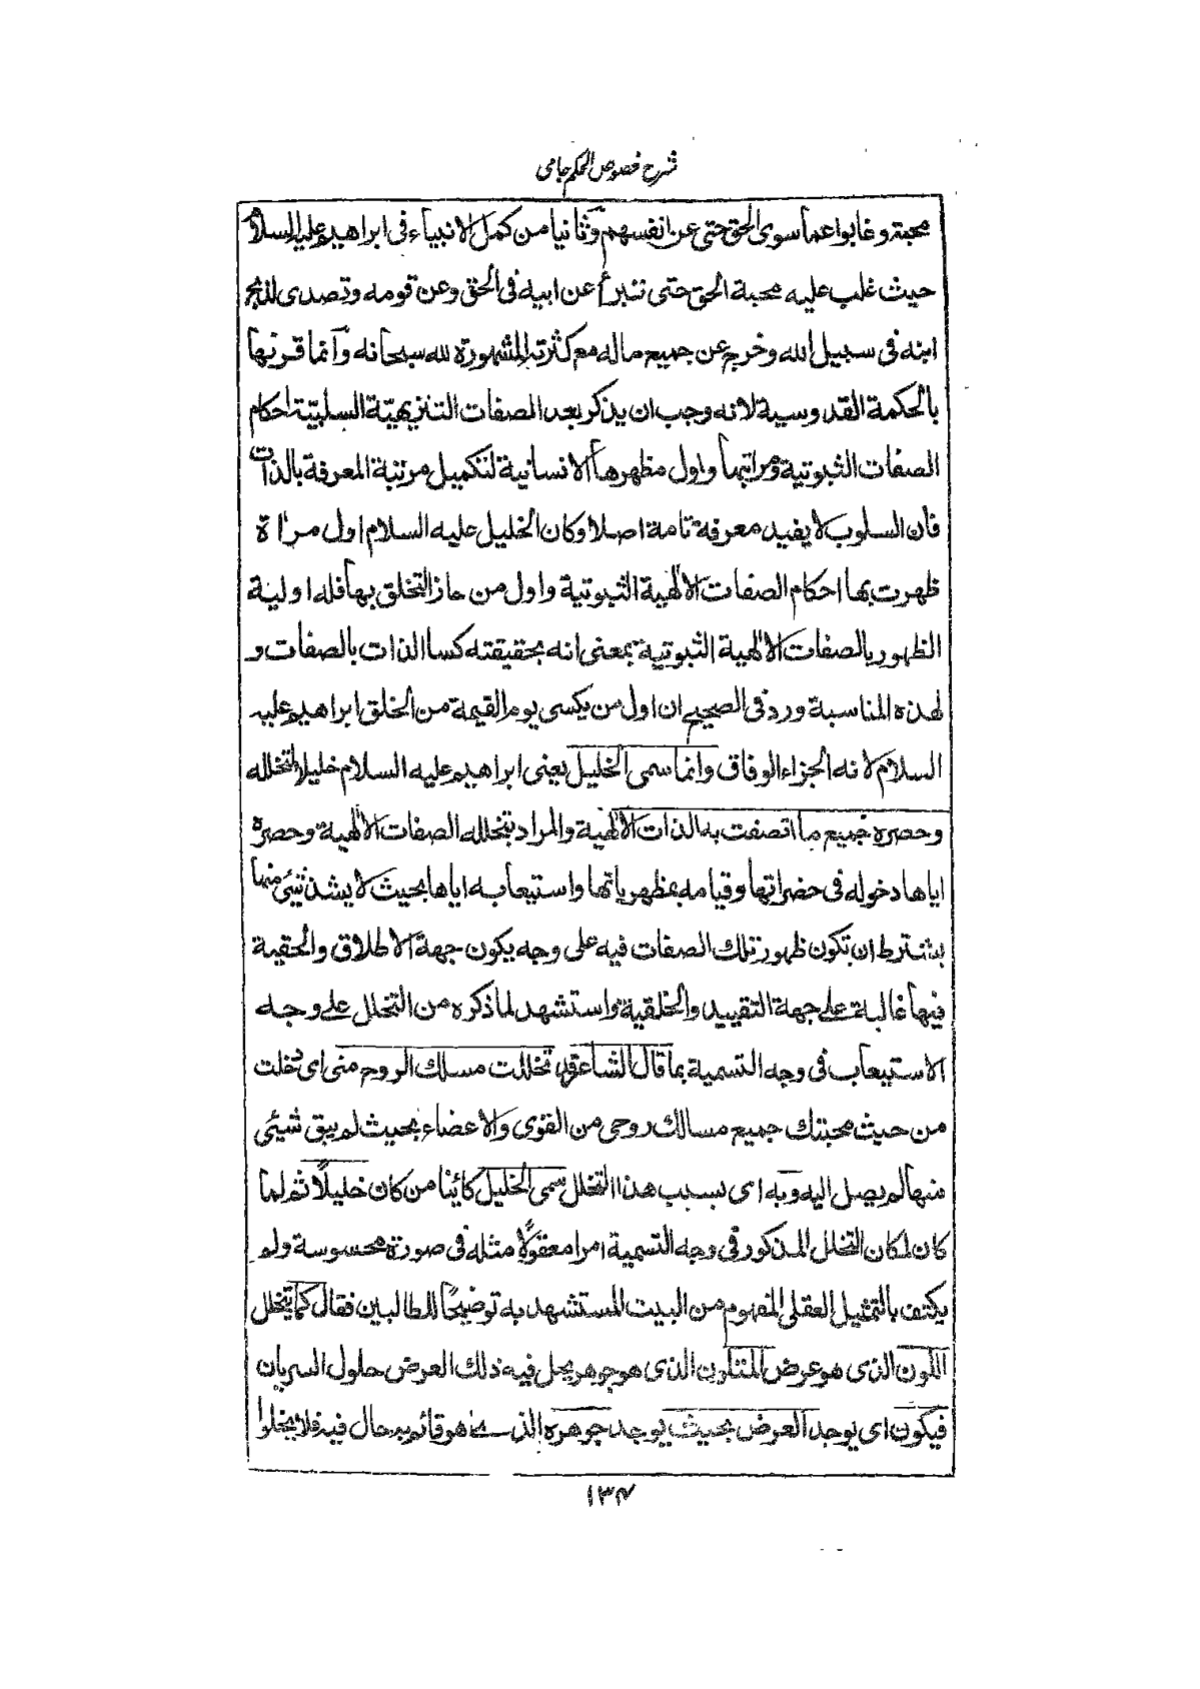 شرح فصوص الحكم جامى
محبته وغابوا عما سوى الحق حتى عن انفسهم وثانيا من كمل الانبياء فى ابراهيم عليه السلام
حيث غلب عليه محبة الحق حتى تبرأ عن ابيه فى الحق وعن قومه وتصدى لذبح
ابنه فى سبيل الله وخرج عن جميع ماله مع كثرته المشهورة لله سبحانه وانما قرنها
بالحكمة القدوسية لانه وجب ان يذكر بعد الصفات التنزيهيّة السلبيّة احكام
الصفات الثبوتية ومراتبها واول مظهرها الانسانية لتكميل مرتبة المعرفة بالذات
فان السلوب لا يفيد معرفة تامة اصلا وكان الخليل عليه السلام اول مراة
ظهرت بها احكام الصفات الالهية الثبوتية واول من حاز التخلق بها فله اولية
الظهور بالصفات الالهية الثبوتية بمعنى انه بحقيقته كسا الذات بالصفات و
لهذه المناسبة ورد فى الصحيح ان اول من يكسى يوم القيمة من الخلق ابراهيم عليه
السلام لانه الجزاء الوفاق وانما سمى الخليل يعنى ابراهيم عليه السلام خليلا لتخلله
وحصره جميع ما اتصفت به الذات الالهية والمراد بتخلله الصفات الالهية وحصره
اياها دخوله فى حضراتها وقيامه بمظهرياتها واستيعابه اياها بحيث لا يشذ شئ منها
بشترط ان تكون ظهور تلك الصفات فيه على وجه يكون جهة الاطلاق والحقية
فيها غالبة على جهة التقييد والخلقية واستشهد لما ذكره من التخلل على وجه
الاستيعاب فى وجه التسمية بما قال الشاعر قد تخللت مسلك الروح منى اى دخلت
من حيث محبتك جميع مسالك روحى من القوى والاعضاء بحيث لم يبق شيئى
منها لم يصل اليه وبه اى بسبب هذا التخلل سمى الخليل كائنا من كان خليلًا ثم لما
كان لمكان التخلل المذكور فى وجه التسمية امرا معقولًا مثله فى صورة محسوسة ولم
يكتف بالتمثيل العقلى المفهوم من البيت المستشهد به توضيحًا للطالبين فقال كما يتخلل
اللون الذى هو عرض المتلون الذى هو جوهر يحل فيه ذلك العرض حلول السريان
فيكون اى يوجد العرض بحيث يوجد جوهره الذى هو قائم به حال فيه فلا يخلوا
١٣٧